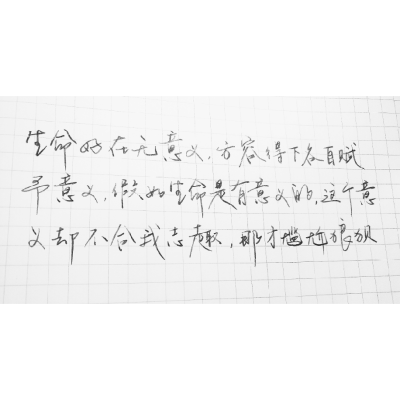 生命好在无意义，方容得下各自赋
予意义，假如生命是有意义的，这个意
义却不合我志趣，那才尴尬狼狈